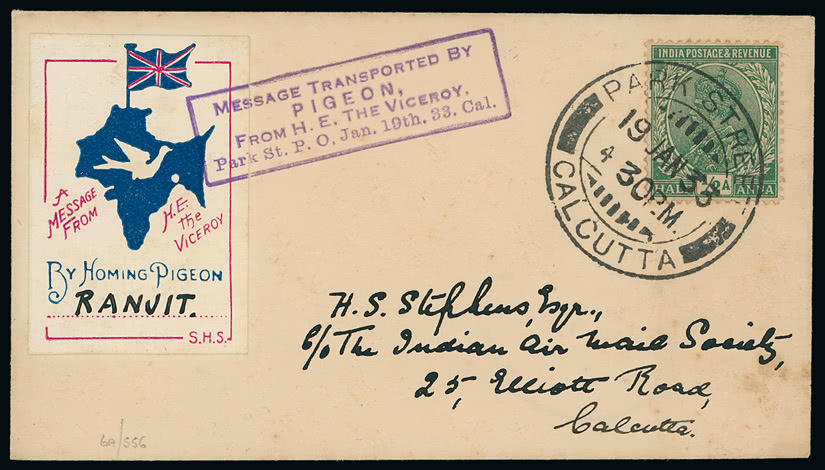 A
MESSAGE
FROM
H.E.
the
VICEROY
BY HOMING PIGEON
RANJIT.
S.H.S.
MESSAGE TRANSPORTED BY
PIGEON,
FROM H. E. THE VICEROY.
Park St. P. O. Jan. 19th. 33. Cal.
INDIA POSTAGE & REVENUE
HALF ANNA
PARK STREET
19 JAN 33
4 30 P.M.
CALCUTTA
H. S. Stephens, Esqr.,
c/o The Indian Air Mail Society,
25, Elliott Road,
Calcutta.
6A/556